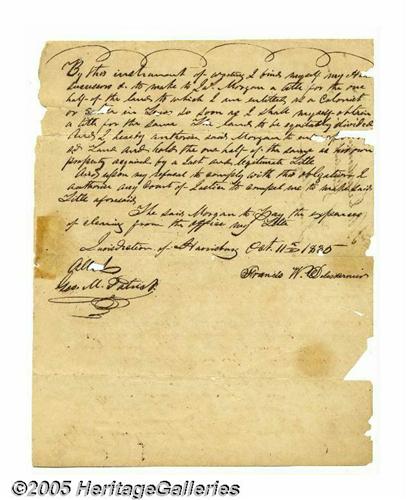 By this instrument of writing I bind myself my
Successors &c to make to Jas. Morgan a title for the one
half of the land to which I am entitled as a Colonist
or in so soon as I shall myself obtain
a title for the same The land to be equitably divided
And I hereby authorise said Morgan to
sd Land and hold the one half of the same as his own
property acquired by a Just and legitimate Title
And upon my refusal to comply with this obligation I
authorise any Court of Justice to compel me to make said
Title aforesaid
The said Morgan to Pay the expences
of clearing from the office my Title
Jurisdiction of Harrisburg Oct. 11th 1835
Attest
Geo. M. Patrick
Francis W.
©2005 HeritageGalleries